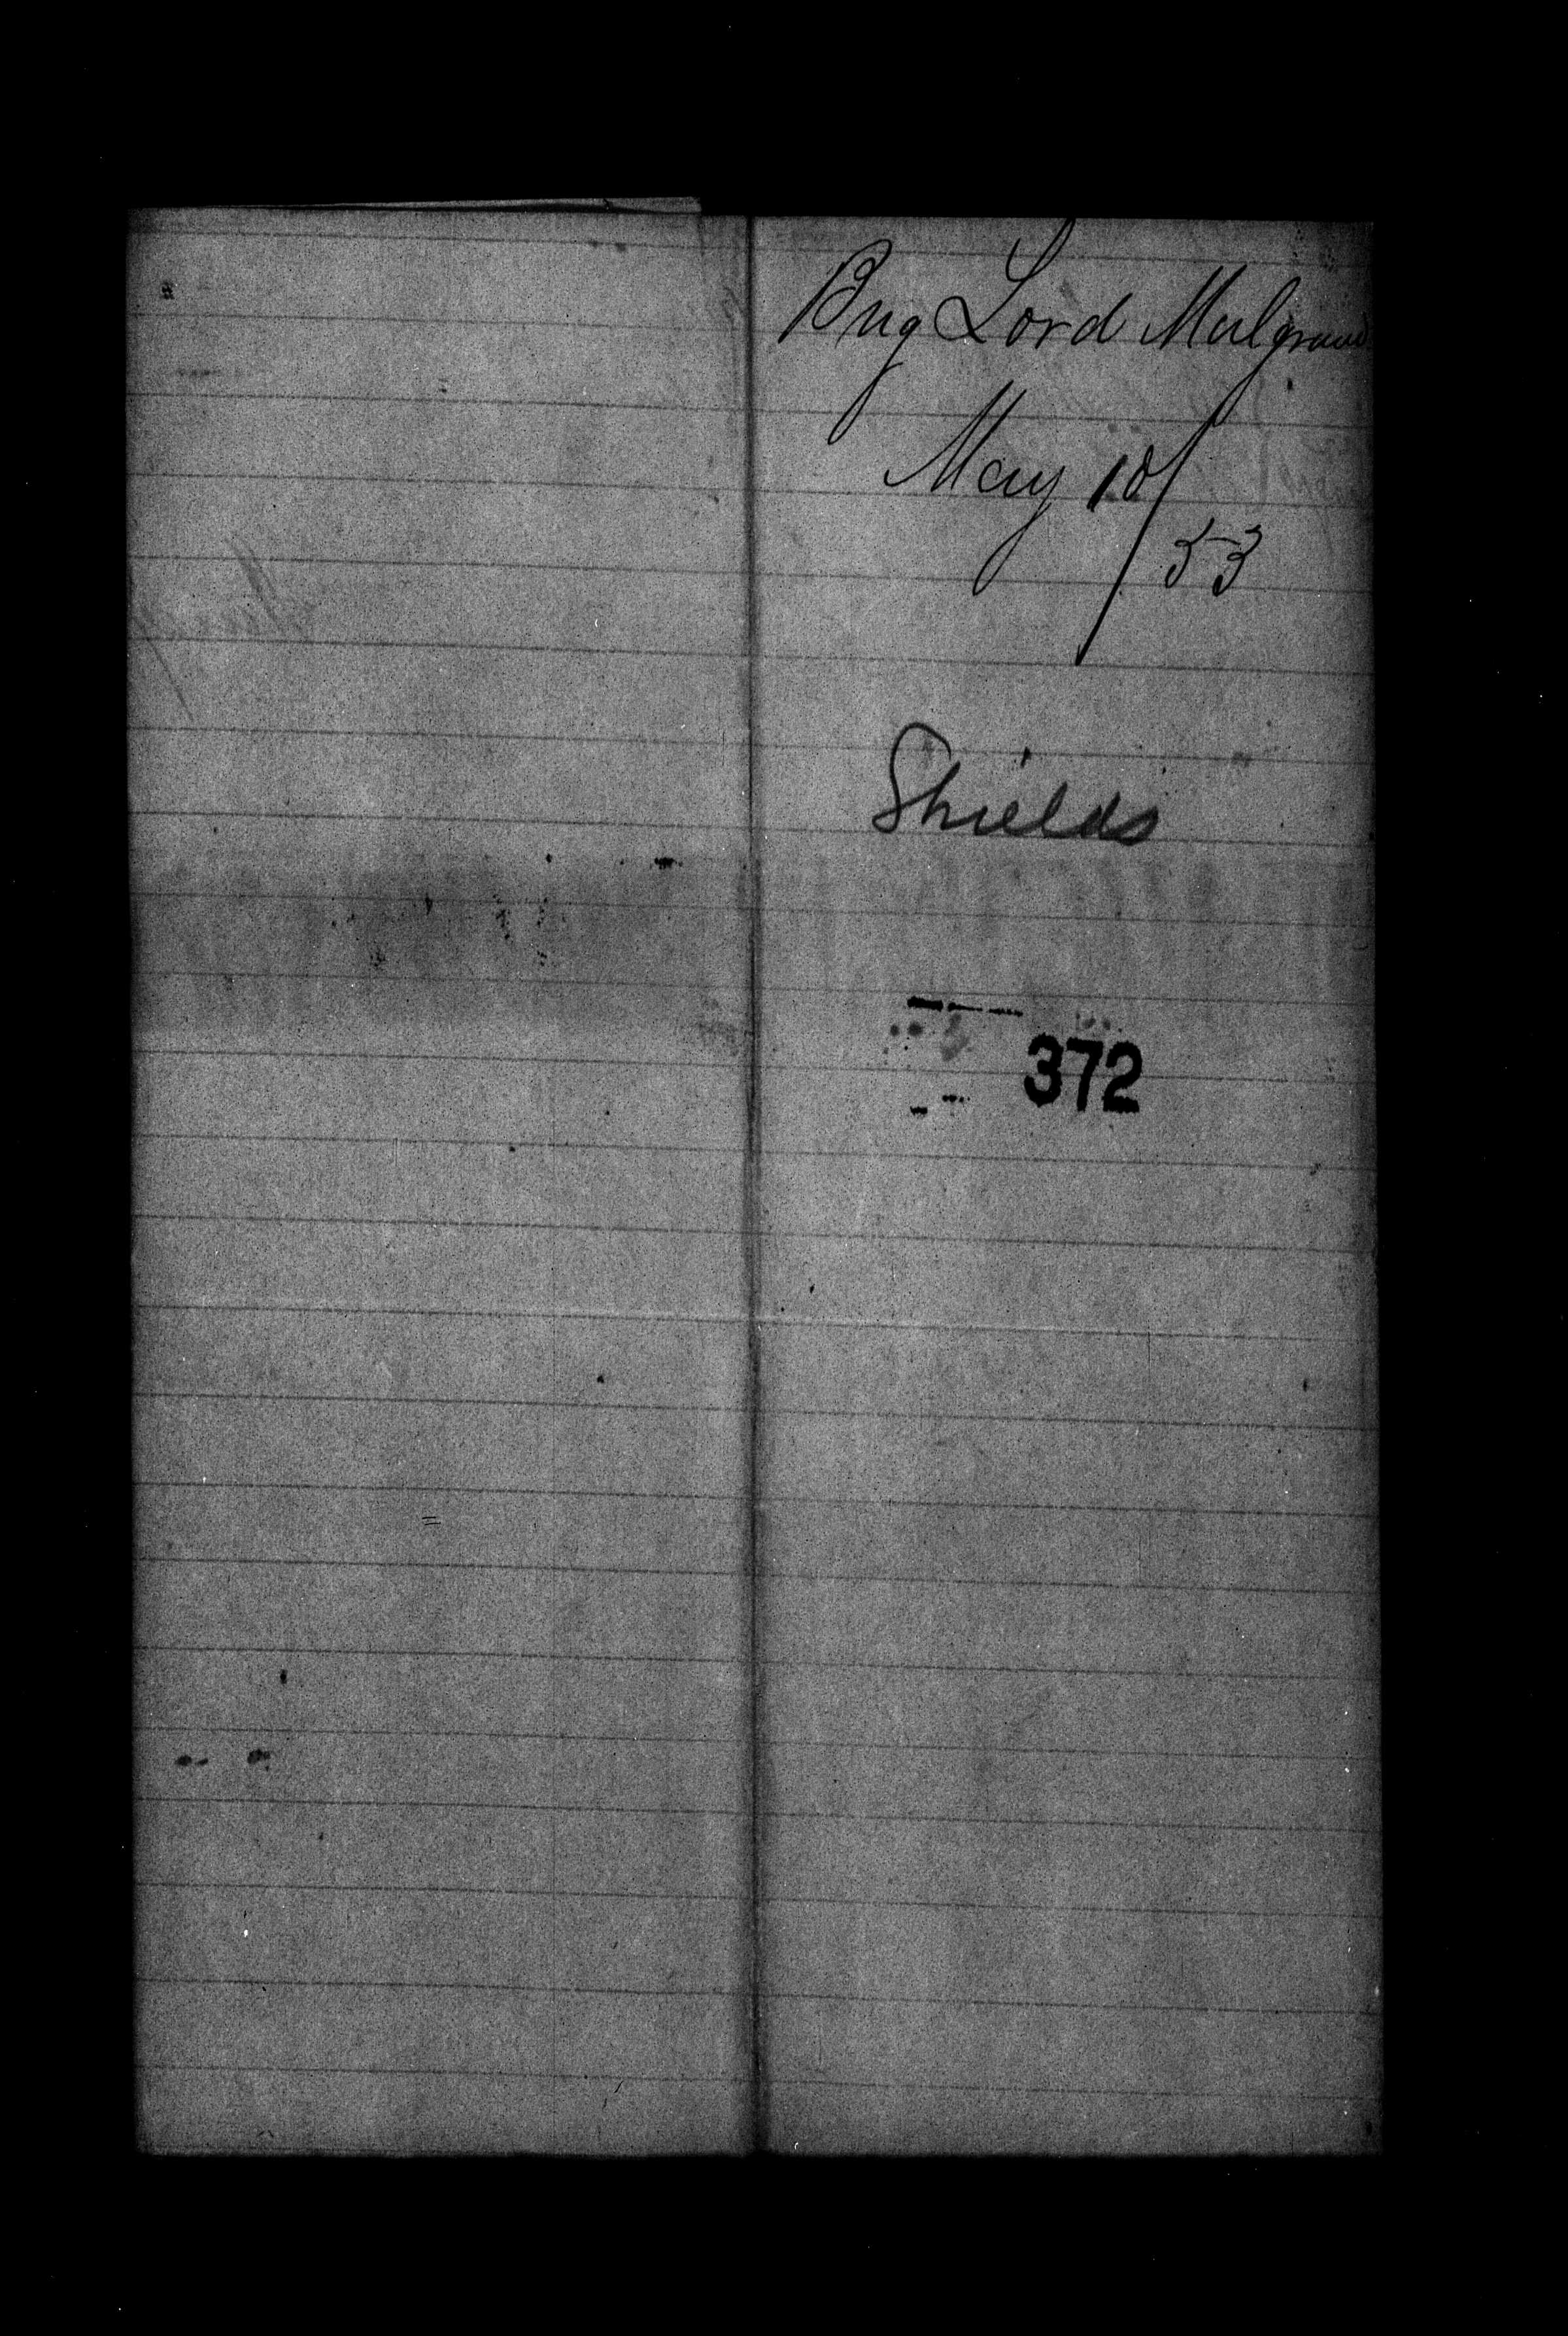 Brig Lord Mulgrave
May 10/
53
Shields
372